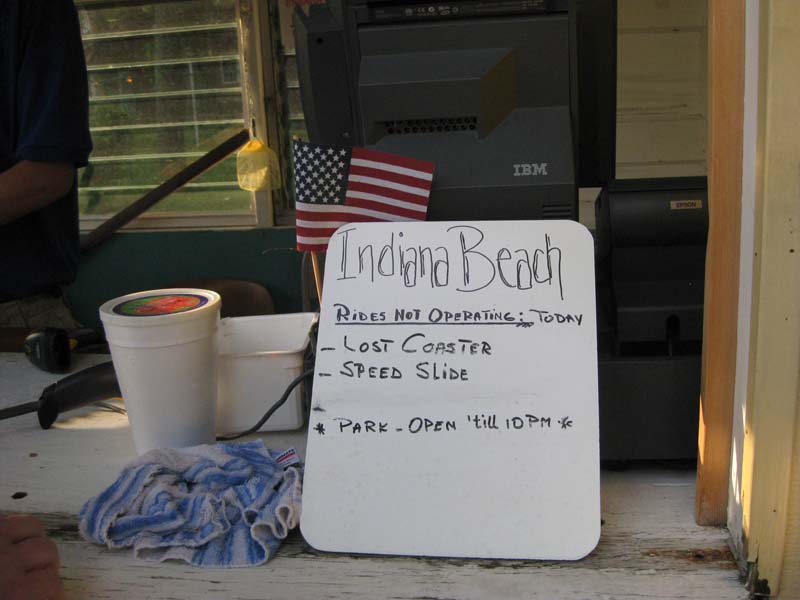 IBM
EPSON
Indiana Beach
RIDES NOT OPERATING: TODAY
- LOST COASTER
- SPEED SLIDE
* PARK - OPEN 'till 10PM *